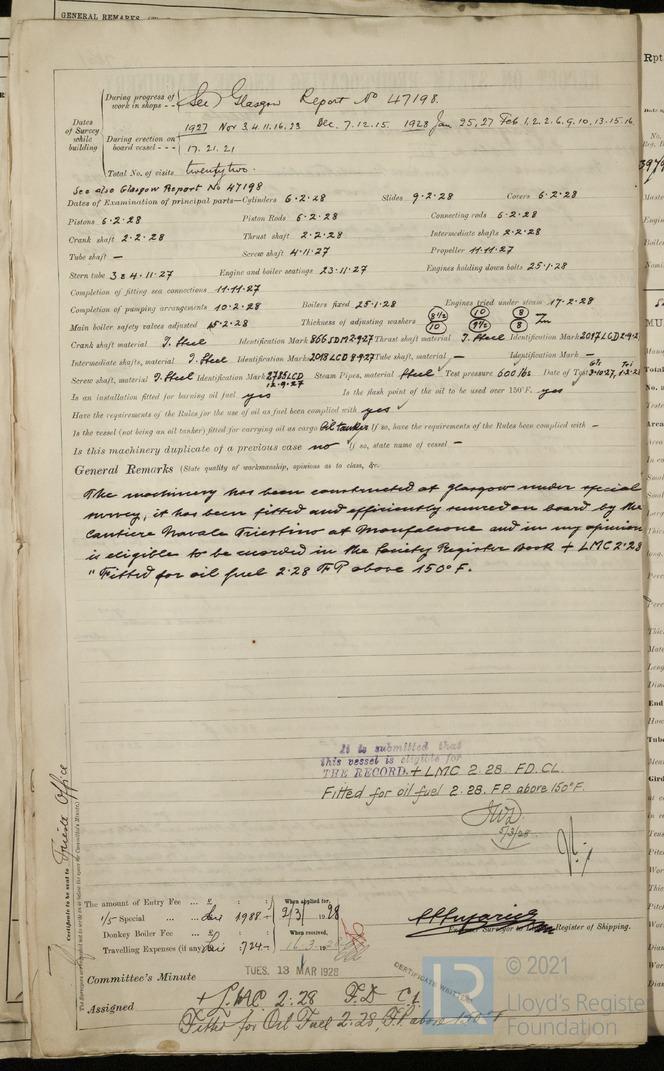 GENERAL REMARKS
During progress of work in shops - - See Glasgow Report No 47198.
Dates of Survey while building
During erection on board vessel - - - 1927 Nov 3.4.11.16.23 Dec. 7.12.15. 1928 Jan 25,27 Feb 1.2.2.6.9.10.13.15.16
17.21.21
Total No. of visits twenty two.
See also Glasgow Report No 47198
Dates of Examination of principal parts—Cylinders 6.2.28 Slides 9.2.28 Covers 6.2.28
Pistons 6.2.28 Piston Rods 6.2.28 Connecting rods 6.2.28
Crank shaft 2.2.28 Thrust shaft 2.2.28 Intermediate shafts 2.2.28
Tube shaft — Screw shaft 4.11.27 Propeller 11.11.27
Stern tube 3 & 4.11.27 Engine and boiler seatings 23.11.27 Engines holding down bolts 25.1.28
Completion of fitting sea connections 11.11.27
Completion of pumping arrangements 10.2.28 Boilers fixed 25.1.28 Engines tried under steam 17.2.28
Main boiler safety valves adjusted 15.2.28 Thickness of adjusting washers 8 1/2 10 10 9 1/2 8 8
Crank shaft material I. Steel Identification Mark 866SDM2.9.27 Thrust shaft material I. Steel Identification Mark 2017LCD2.9.2
Intermediate shafts, material I. Steel Identification Marks 2018LCD8.9.27 Tube shaft, material — Identification Mark —
Screw shaft, material I. Steel Identification Mark 2785LCD 12.9.27 Steam Pipes, material Steel Test pressure 600 lbs Date of Test 3.10.27, 1.2.2
Is an installation fitted for burning oil fuel yes Is the flash point of the oil to be used over 150°F. yes
Have the requirements of the Rules for the use of oil as fuel been complied with yes
Is the vessel (not being an oil tanker) fitted for carrying oil as cargo Oil tanker If so, have the requirements of the Rules been complied with —
Is this machinery duplicate of a previous case no If so, state name of vessel —
General Remarks (State quality of workmanship, opinions as to class, &c.
The machinery has been constructed at Glasgow under special
survey, it has been fitted and efficiently secured on board by the
Cantiere Navale Triestino at Monfalcone and in my opinion
is eligible to be recorded in the Society Register Book + LMC 2.28
"Fitted for oil fuel 2.28 FP above 150°F.
It is submitted that
this vessel is eligible for
THE RECORD. + LMC 2.28. FD. CL.
Fitted for oil fuel 2.28. F.P. above 150°F.
5/3/28
Certificate to be sent to Trieste Office
The amount of Entry Fee ... £ : : When applied for,
1/5 Special ... ... Lire 1988 : 2/3/1928
Donkey Boiler Fee ... £ : : When received,
Travelling Expenses (if any) Lire : 724.— 16.3.28
Engineer Surveyor to Lloyd's Register of Shipping.
Committee's Minute TUES. 13 MAR 1928
CERTIFICATE WRITTEN
Assigned + LMC 2.28 F.D C.L
Fitted for Oil Fuel 2.28 F.P. above 150°F
© 2021
Lloyd's Register
Foundation